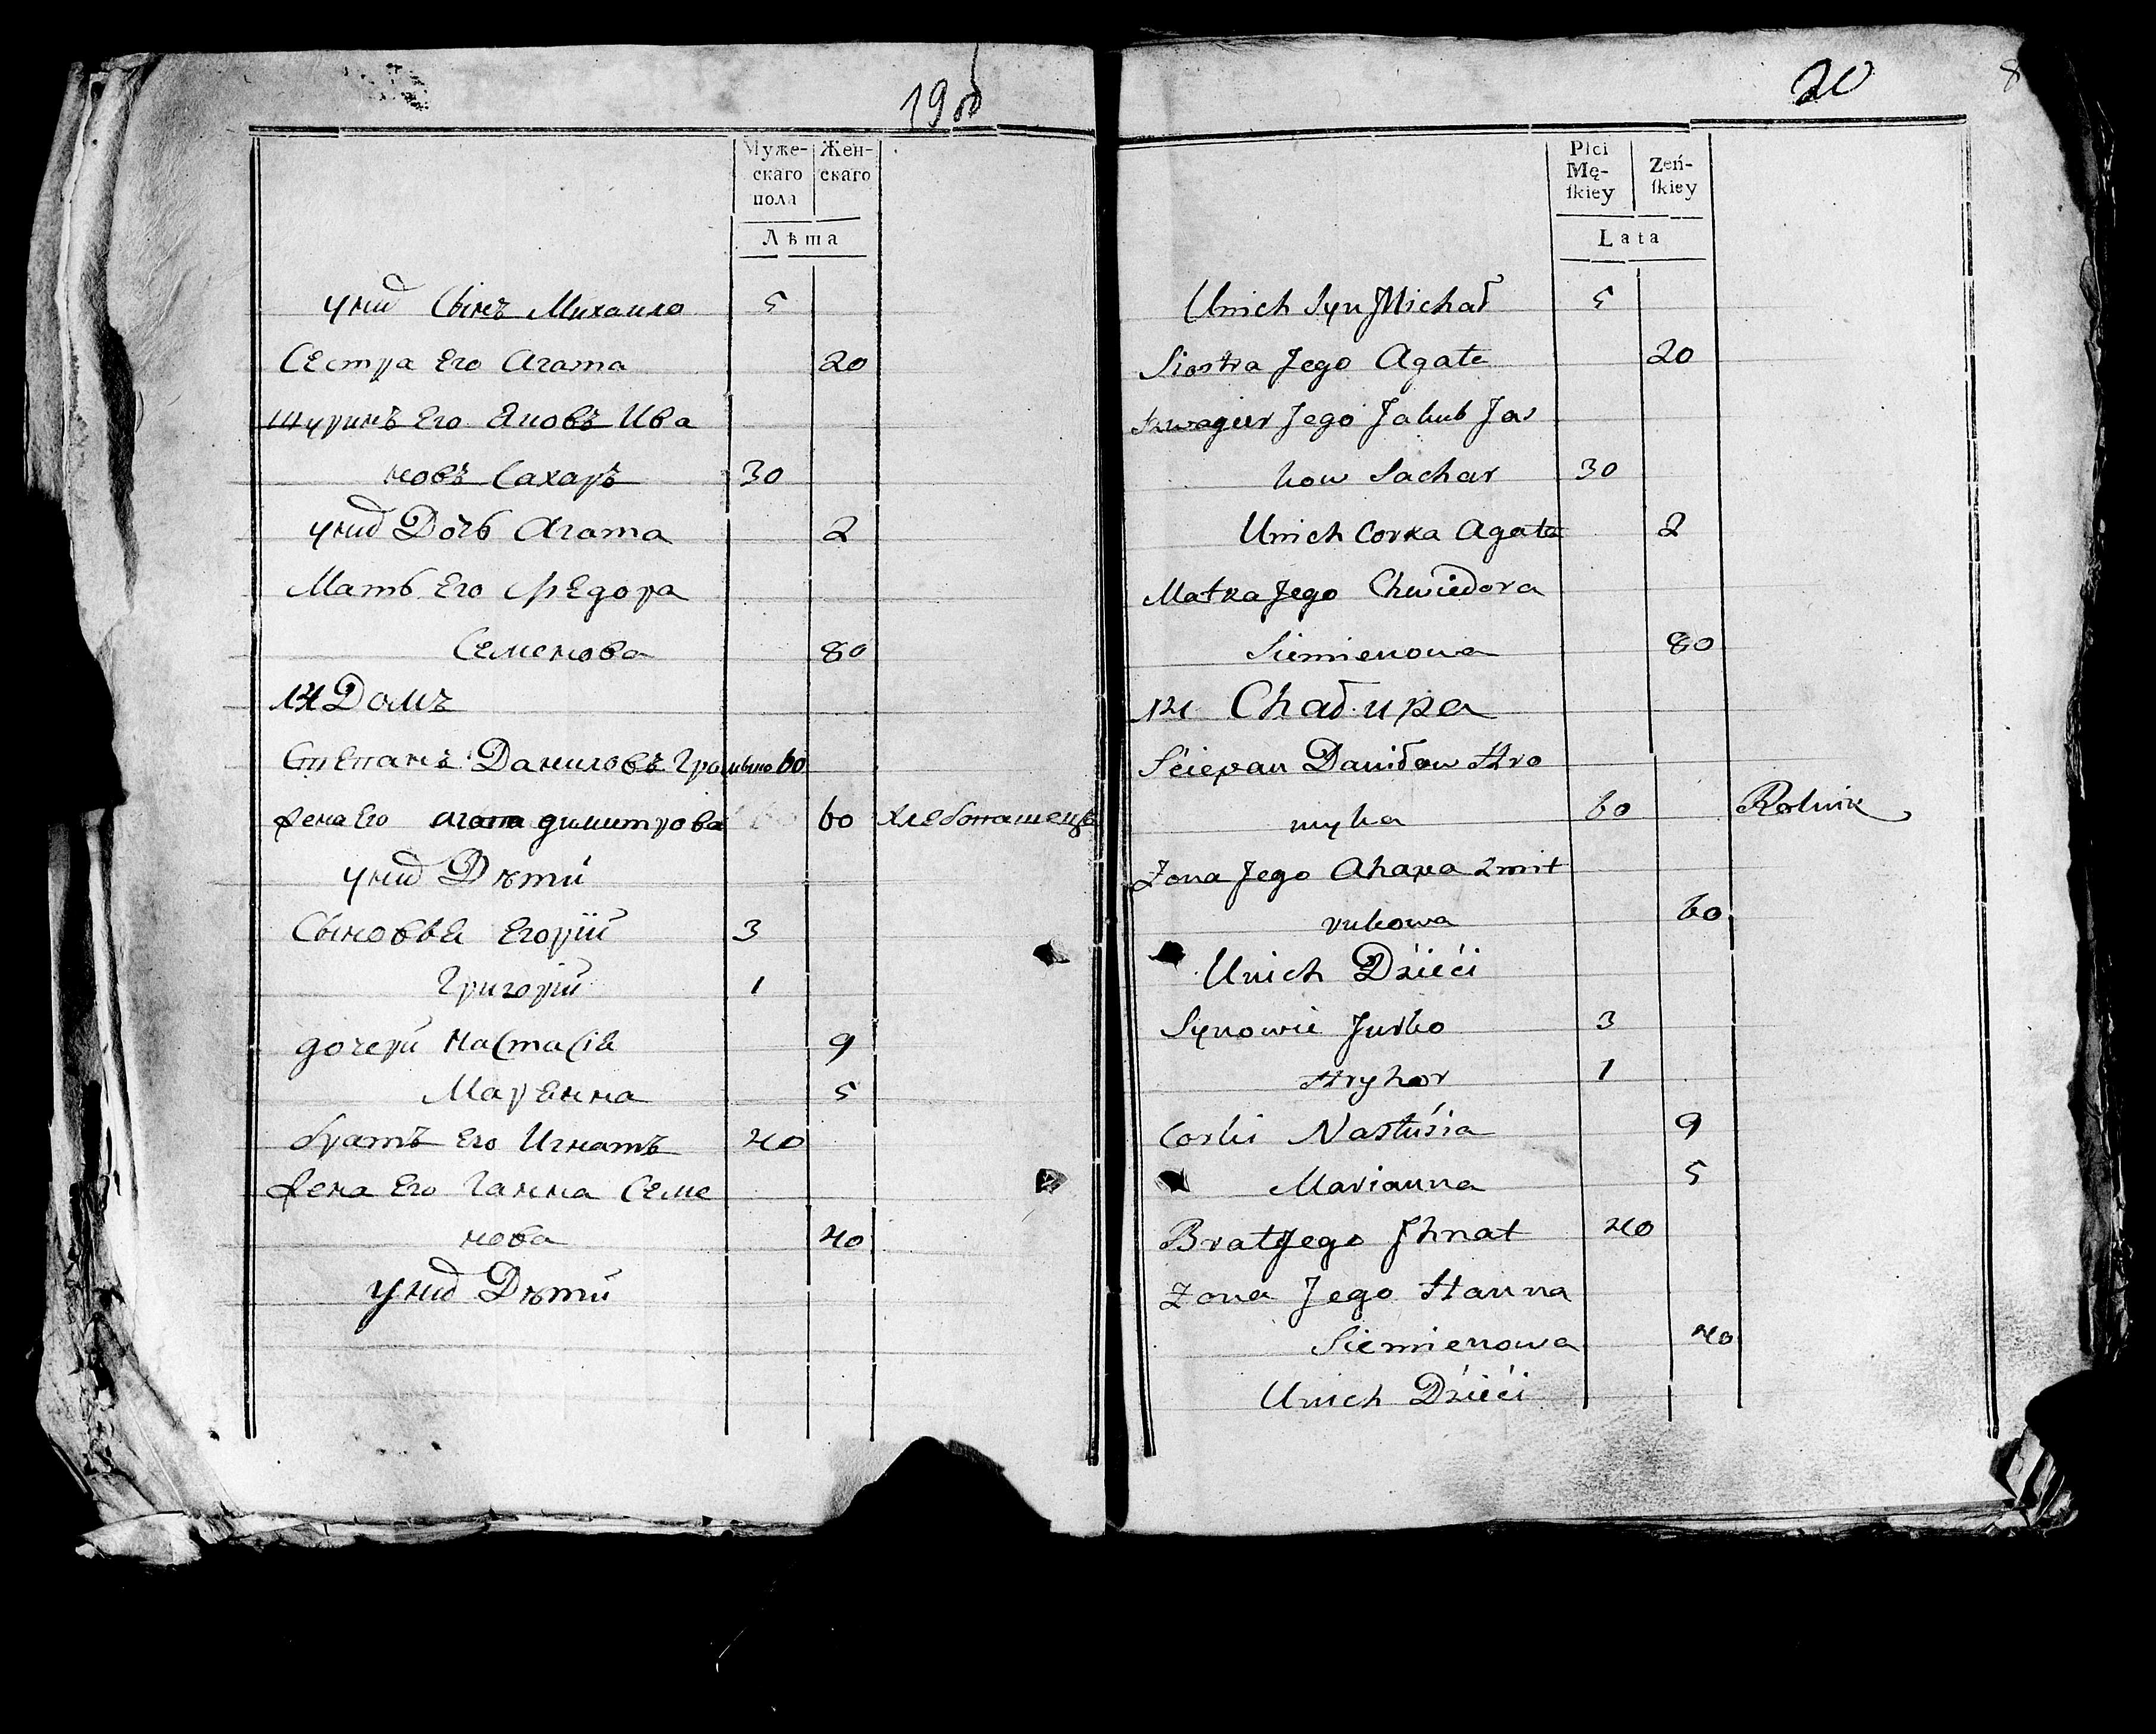 19 об
Муже-
скаго
пола
Жен-
скаго
Лѣта
у нид Сынъ Михаило 5
Сестра Его Агата 20
шуринъ Его Яковъ Ива
новъ Сахаръ 30
у нид Дочь Агата 2
Мать Его Федора
Семенова 80
Домъ
Степанъ Даниловъ Громыко 60
Жена Его Агапа Димитрова 60 Хлебопашецъ
у нид Дѣти
Сыновья Егорій 3
Григорій 1
дочери Настасія 9
Маріянна 5
братъ Его Игнатъ 40
Жена Его Ганна Семе
нова 40
у нид Дѣти
20
8
Płci
Mę-
ſkiey
Żeń-
ſkiey
Lata
Unich Syn Michał 5
Siostra Jego Agata 20
Szwagier Jego Jakub Jan
kow Sachar 30
Unich Corka Agata 2
Matka Jego Chwiedora
Siemienowa 80
Chałupa
Sciepan Daniłow Hro
myka 60 Rolnik
Zona Jego Ahapa Zmit
rukowa 60
Unich Dzieći
Synowie Jurko 3
Hryhor 1
Corki Nastuśia 9
Marianna 5
Brat Jego Jhnat 40
Zona Jego Hanna
Siemienowa 40
Unich Dzieći